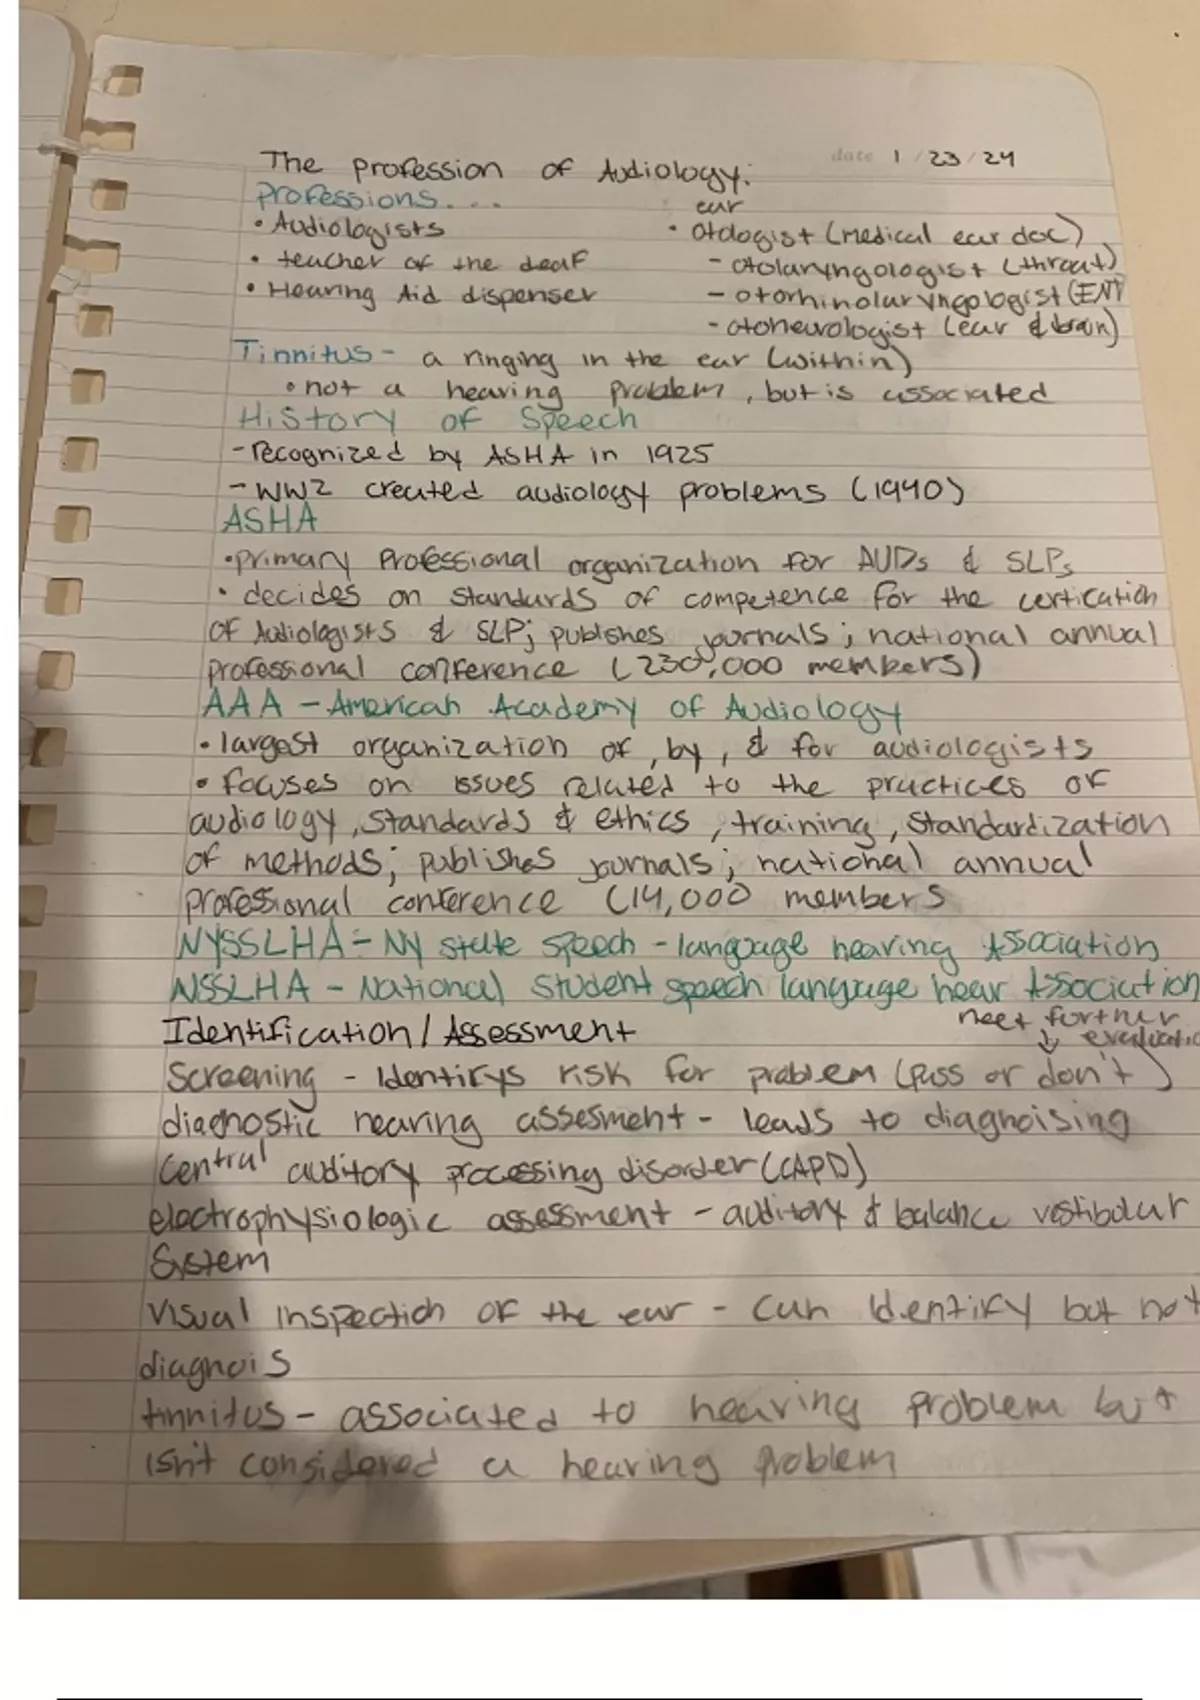 date 1/23/24
The profession of Audiology:
Professions...
• Audiologists
• teacher of the deaf
• Hearing Aid dispenser
ear
• otologist (medical ear doc)
- otolaryngologist (throat)
- otorhinolaryngologist (ENT
- otoneurologist (ear & brain)
Tinnitus - a ringing in the ear (within)
• not a hearing problem, but is associated
History of Speech
- recognized by ASHA in 1925
- WW2 created audiology problems (1940)
ASHA
• primary professional organization for AUDs & SLPs
• decides on standards of competence for the certication
of Audiologists & SLP; publishes journals; national annual
professional conference (230,000 members)
AAA - American Academy of Audiology
• largest organization of, by, & for audiologists
• focuses on issues related to the practices of
audiology, standards & ethics, training, standardization
of methods; publishes journals; national annual
professional conference (14,000 members
NYSSLHA - NY state speech-language hearing Association
NSSLHA - National student speech language hear Association
Identification/Assessment
need further
↓ evaluatio
Screening - Identifys risk for problem (pass or don't)
diagnostic hearing assesment - leads to diagnoising
Central auditory processing disorder (CAPD)
electrophysiologic assessment - auditory & balance vestibular
System
Visual inspection of the ear - can identify but not
diagnois
tinnitus - associated to hearing problem but
isn't considered a hearing problem